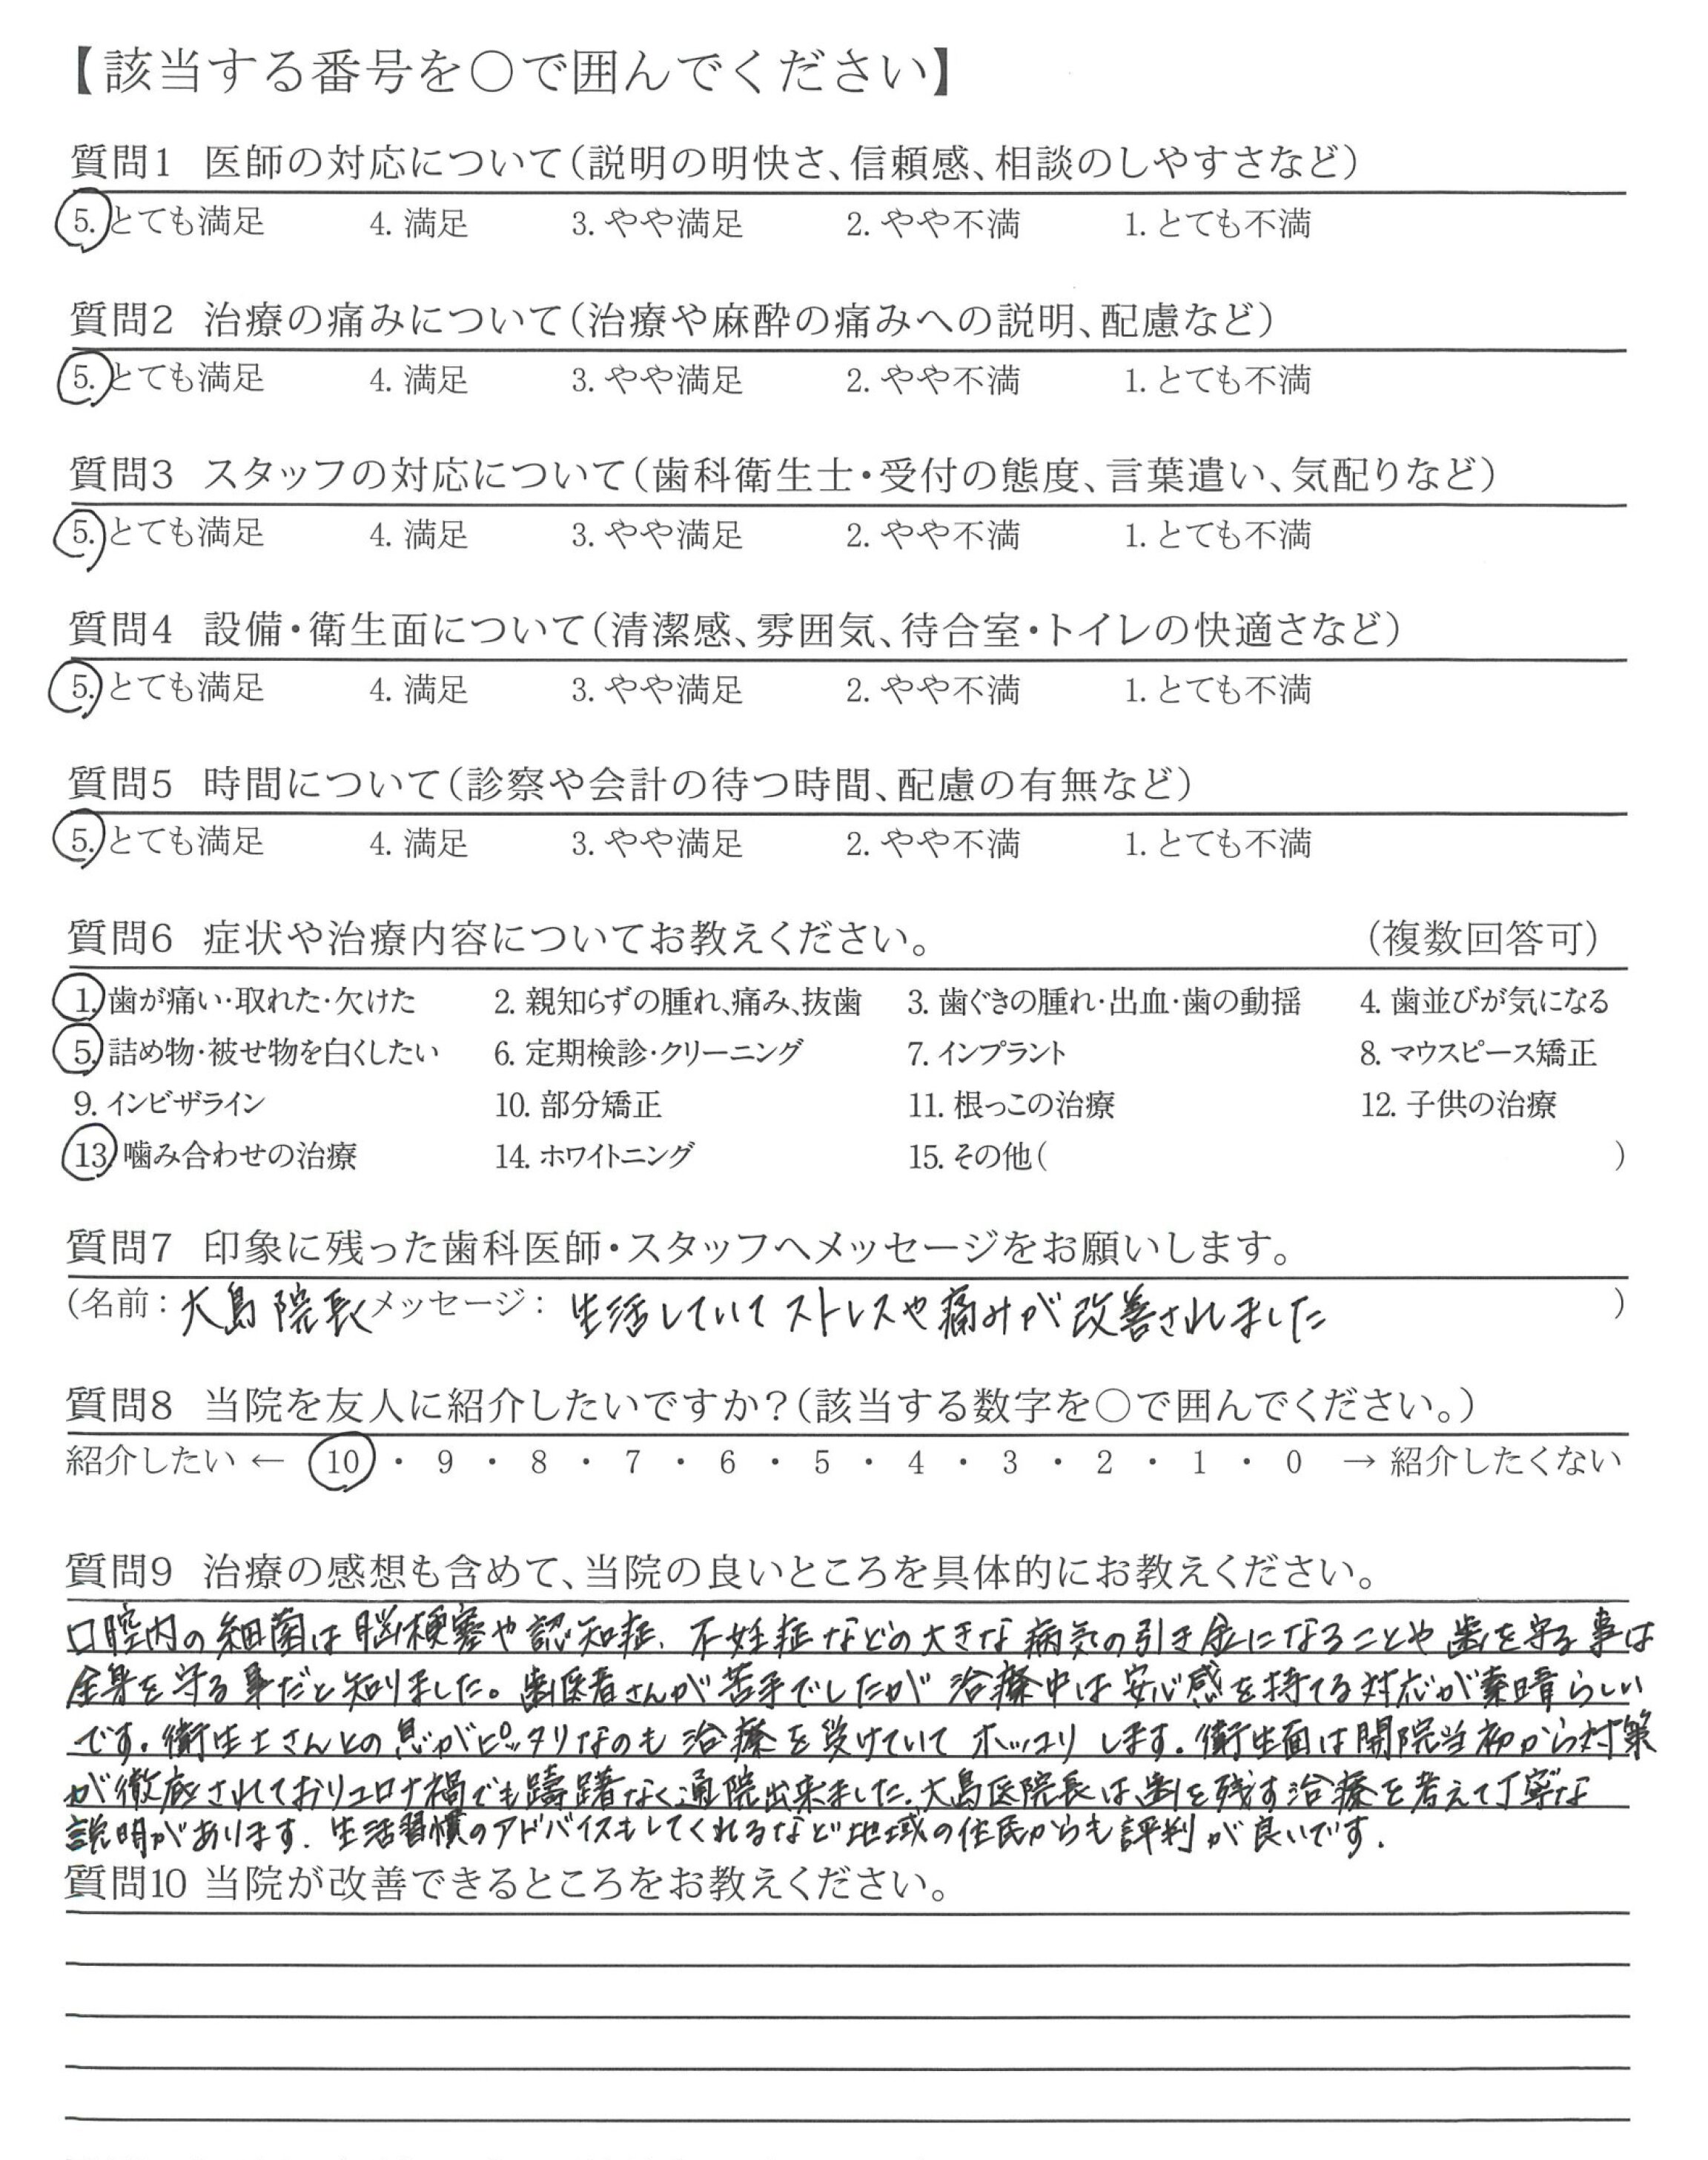 【該当する番号を〇で囲んでください】
質問1 医師の対応について(説明の明快さ、信頼感、相談のしやすさなど)
5. とても満足 4. 満足 3. やや満足 2. やや不満 1. とても不満
質問2 治療の痛みについて(治療や麻酔の痛みへの説明、配慮など)
5. とても満足 4. 満足 3. やや満足 2. やや不満 1. とても不満
質問3 スタッフの対応について(歯科衛生士・受付の態度、言葉遣い、気配りなど)
5. とても満足 4. 満足 3. やや満足 2. やや不満 1. とても不満
質問4 設備・衛生面について(清潔感、雰囲気、待合室・トイレの快適さなど)
5. とても満足 4. 満足 3. やや満足 2. やや不満 1. とても不満
質問5 時間について(診察や会計の待つ時間、配慮の有無など)
5. とても満足 4. 満足 3. やや満足 2. やや不満 1. とても不満
質問6 症状や治療内容についてお教えください。 (複数回答可)
1. 歯が痛い・取れた・欠けた 2. 親知らずの腫れ、痛み、抜歯 3. 歯ぐきの腫れ・出血・歯の動揺 4. 歯並びが気になる
5. 詰め物・被せ物を白くしたい 6. 定期検診・クリーニング 7. インプラント 8. マウスピース矯正
9. インビザライン 10. 部分矯正 11. 根っこの治療 12. 子供の治療
13. 噛み合わせの治療 14. ホワイトニング 15. その他( )
質問7 印象に残った歯科医師・スタッフへメッセージをお願いします。
(名前: 大島 院長 メッセージ: 生活していてストレスや痛みが改善されました )
質問8 当院を友人に紹介したいですか?(該当する数字を〇で囲んでください。)
紹介したい ← 10 ・ 9 ・ 8 ・ 7 ・ 6 ・ 5 ・ 4 ・ 3 ・ 2 ・ 1 ・ 0 → 紹介したくない
質問9 治療の感想も含めて、当院の良いところを具体的にお教えください。
口腔内の細菌は脳梗塞や認知症、不妊症などの大きな病気の引き金になることや歯を守る事は
全身を守る事だと知りました。歯医者さんが苦手でしたが治療中は安心感を持てる対応が素晴らしい
です。衛生士さんとの息がピッタリなのも治療を受けていてホッコリします。衛生面は開院当初から対策
が徹底されておりコロナ禍でも躊躇なく通院出来ました。大島医院長は歯を残す治療を考えて丁寧な
説明があります。生活習慣のアドバイスもしてくれるなど地域の住民からも評判が良いです。
質問10 当院が改善できるところをお教えください。